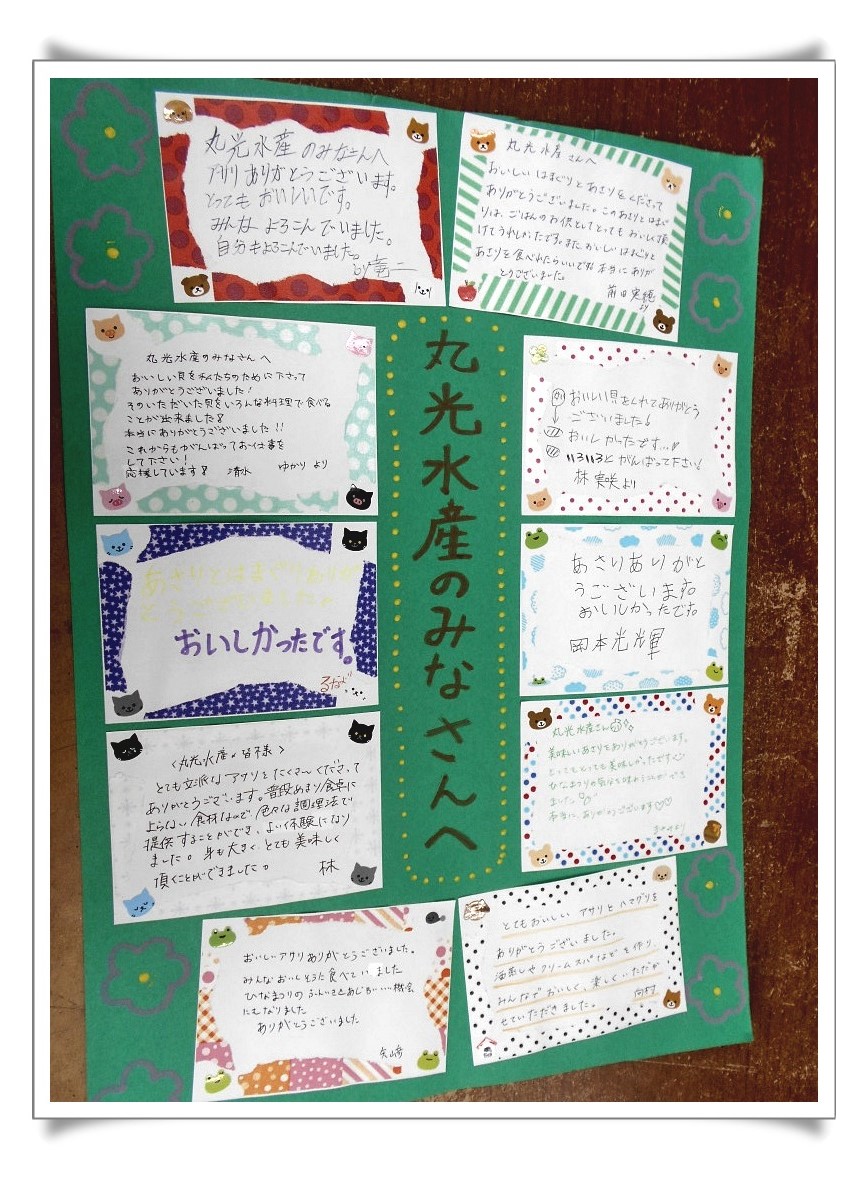 丸光水産のみなさんへ
丸光水産のみなさんへ
アサリありがとうございます。
とっても おいしいです。
みんな よろこんでいました。
自分もよろこんでいました。
by 竜二
丸光水産 さんへ
おいしい はまぐり と あさり をくださって
ありがとうございました。このあさりとはまぐ
りは、ごはんのお供としてとってもおいしく頂
けてうれしかったです。また、おいしいはまぐりと
あさりを食べれたらいいです!本当に ありが
とうございました。
前田 実穂
より
丸光水産のみなさんへ
おいしい貝を私たちのために下さって
ありがとうございました!
そのいただいた貝をいろんな料理で食べる
ことが出来ました
本当にありがとうございました!!
これからもがんばってお仕事を
して下さい!
応援しています 清水 ゆかり より
おいしい貝をくれてありがとう
ございました!
おいしかったです…
いろいろとがんばって下さい!
林 実咲より
あさりとはまぐりありが
とうございました。
おいしかったです。
あさりありがと
うございます。
おいしかったです。
岡本光輝
<丸光水産の皆様>
とても立派なアサリをたくさんくださって
ありがとうございます。普段あまり食卓に
上らない食材なので色々な調理法で
提供することができ、よい体験になり
ました。身も大きく、とても美味しく
頂くことができました。 林
丸光水産さん
美味しいあさりをありがとうございます。
とってもとっても美味しかったです
ひなまつりの気分を味わうことができ
ました
本当に、ありがとうございます♡♡
おいしいアサリありがとうございました。
みんなおいしそうに食べていました
ひなまつりの ふんいきをあじわういい機会
にもなりました
ありがとうございました
矢山奇
とてもおいしい アサリ と ハマグリを
ありがとうございました。
酒蒸しやクリームスパなどを作り、
みんなでおいしく、楽しくいただか
せていただきました。 向村